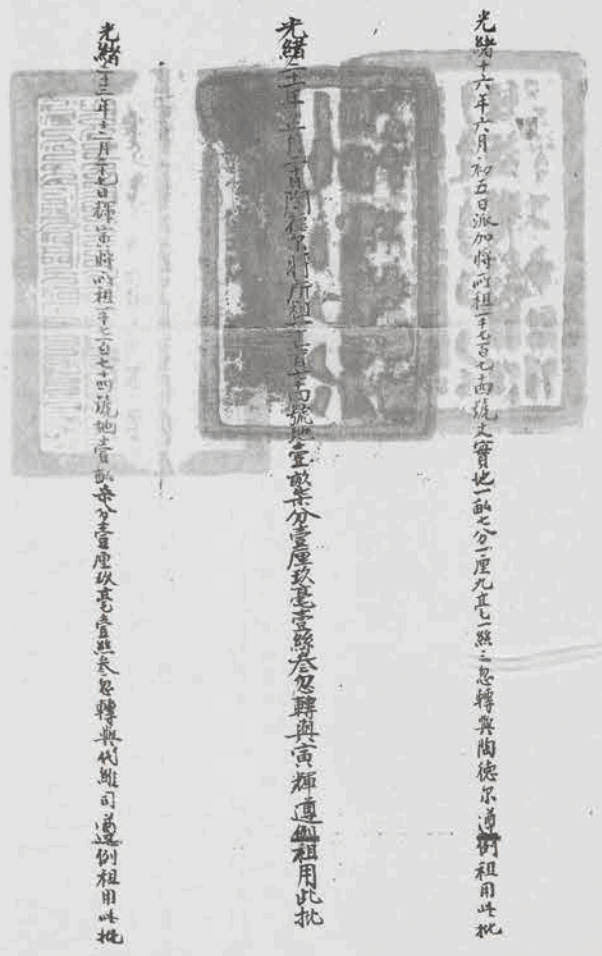 光緒十六年六月初五日派加將所租一千七百七十四號丈實地一畝七分一厘九毫一絲三忽轉與陶德尔遵例租用此批
光緒二十一年五月十日陶德尔將所租一千七百七十四號地壹畝柒分壹厘玖毫壹絲叁忽轉與寅輝遵例租用此批
光緒二十三年十二月二十七日輝寅將所租一千七百七十四號地壹畝柒分壹厘玖毫壹絲叁忽轉與代雒司遵例租用此批